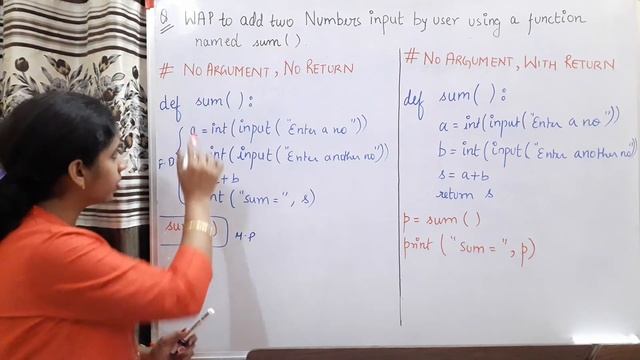 Q WAP to add two Numbers input by user using a function
named sum()
# NO ARGUMENT, NO RETURN
def sum():
a = int(input("Enter a no"))
int(input("Enter another no"))
a+b
("sum=", s)
M.P
# NO ARGUMENT, WITH RETURN
def sum():
a = int(input("Enter a no"))
b = int(input("Enter another no"))
s = a+b
return s
p = sum()
print("sum=", p)